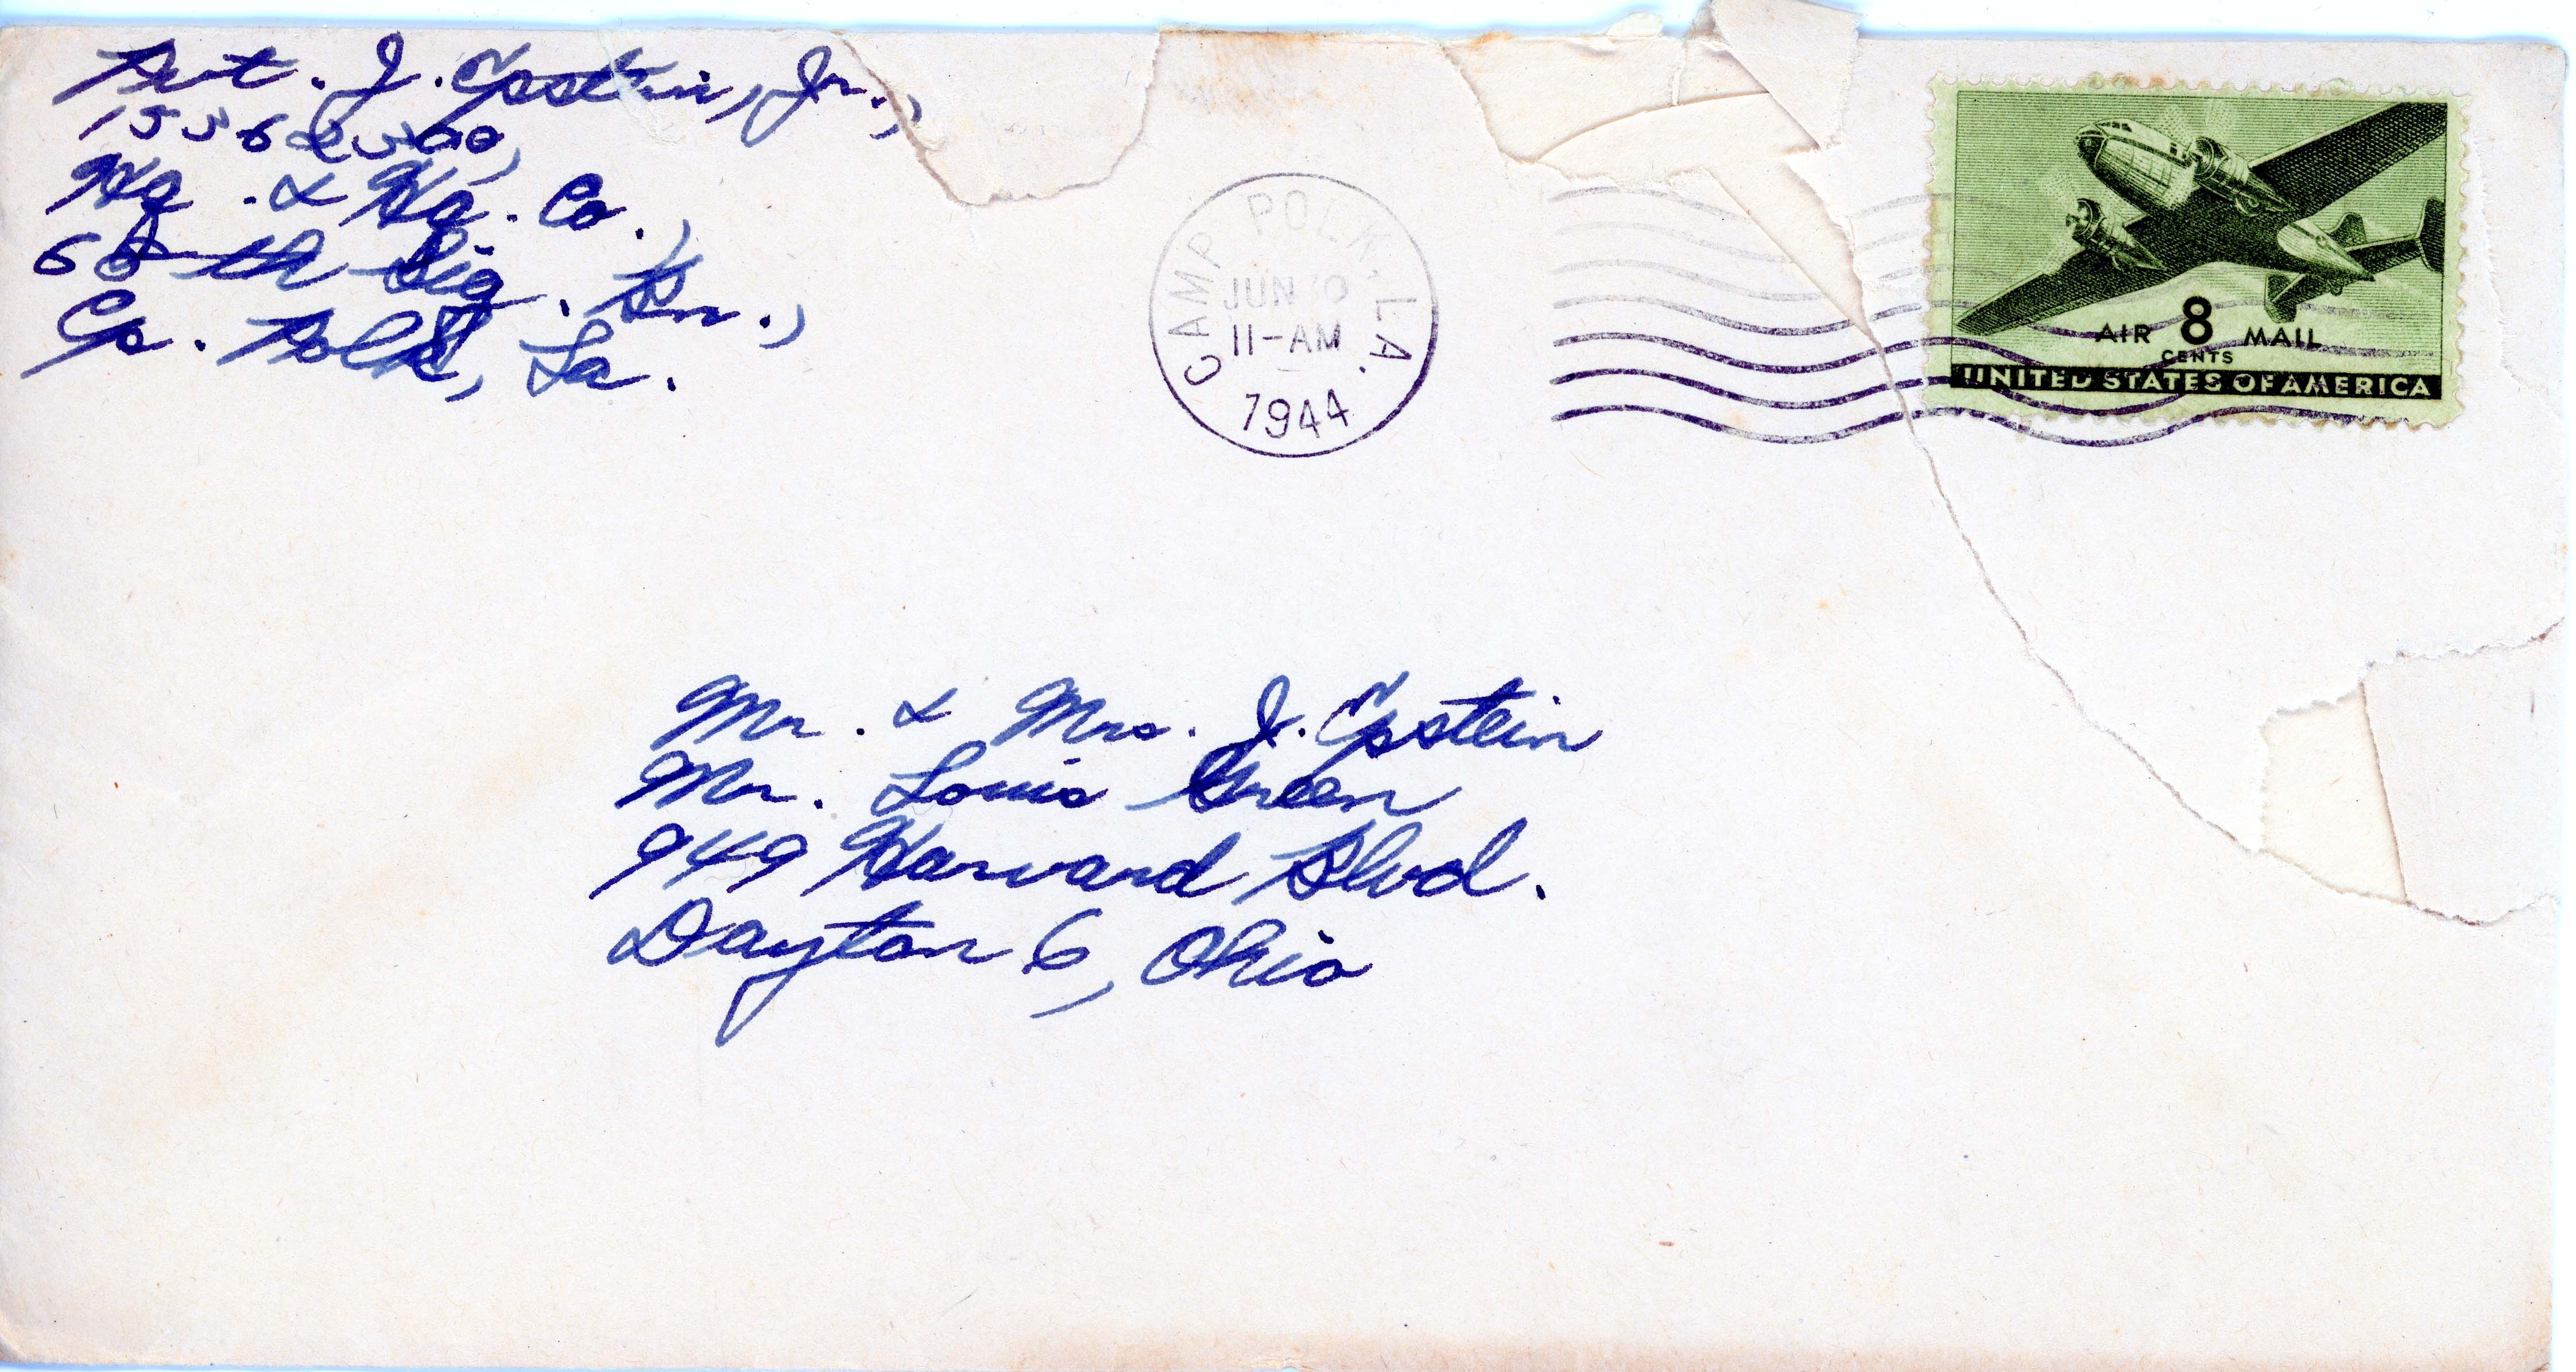 Pvt. J. Epstein, Jr.,
Hq. & Hq. Co.,
Sig. Bn.,
Cp. Polk, La.
CAMP POLK, LA.
JUN
11-AM
1944
AIR 8 MAIL
CENTS
UNITED STATES OF AMERICA
Mr. & Mrs. J. Epstein
Mr. Louis Green
949 Harvard Blvd.
Dayton 6, Ohio